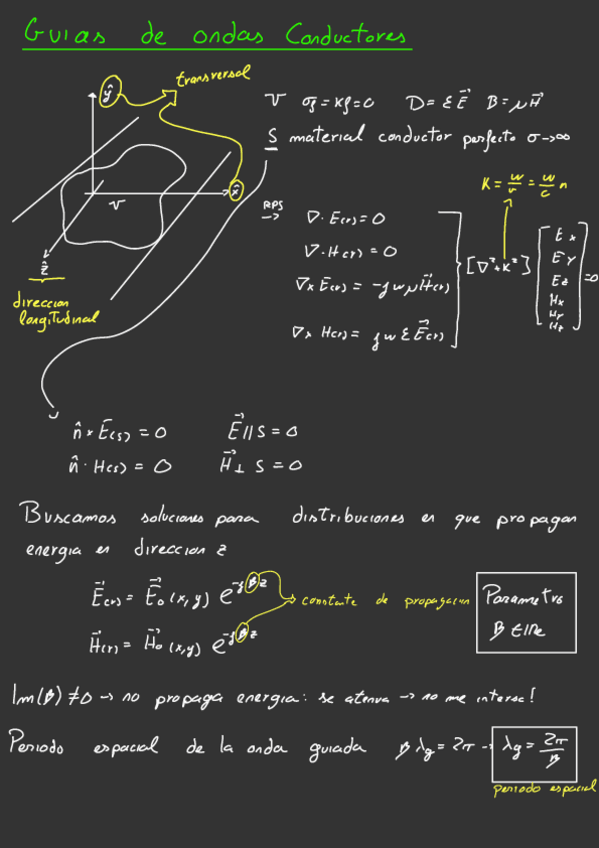 Guias de ondas Conductores
ŷ transversal
V σ₀ = Kρ = 0 D = εE⃗ B = μH⃗
S material conductor perfecto σ→∞
x̂
V
ẑ
direccion
longitudinal
RPS →
K = w/v = w/c n
∇· E(r) = 0
∇· H(r) = 0
∇x E⃗(r) = -jwμH⃗(r)
∇x H(r) = jwεE⃗(r)
[∇² + K²] [Ex Ey Ez Hx Hy Hz] = 0
n̂ x E⃗(s) = 0 E⃗∥S = 0
n̂ · H(s) = 0 H⃗⊥ S = 0
Buscamos soluciones para distribuciones en que propagan
energia en direccion z
E⃗(r) = E⃗₀(x,y) e^-jβz → constante de propagacion
H⃗(r) = H⃗₀(x,y) e^-jβz
Parametro
β ∈ ℝe
Im(β) ≠ 0 → no propaga energia: se atenua → no me interesa!
Periodo espacial de la onda guiada βλg = 2π → λg = 2π/β
periodo espacial